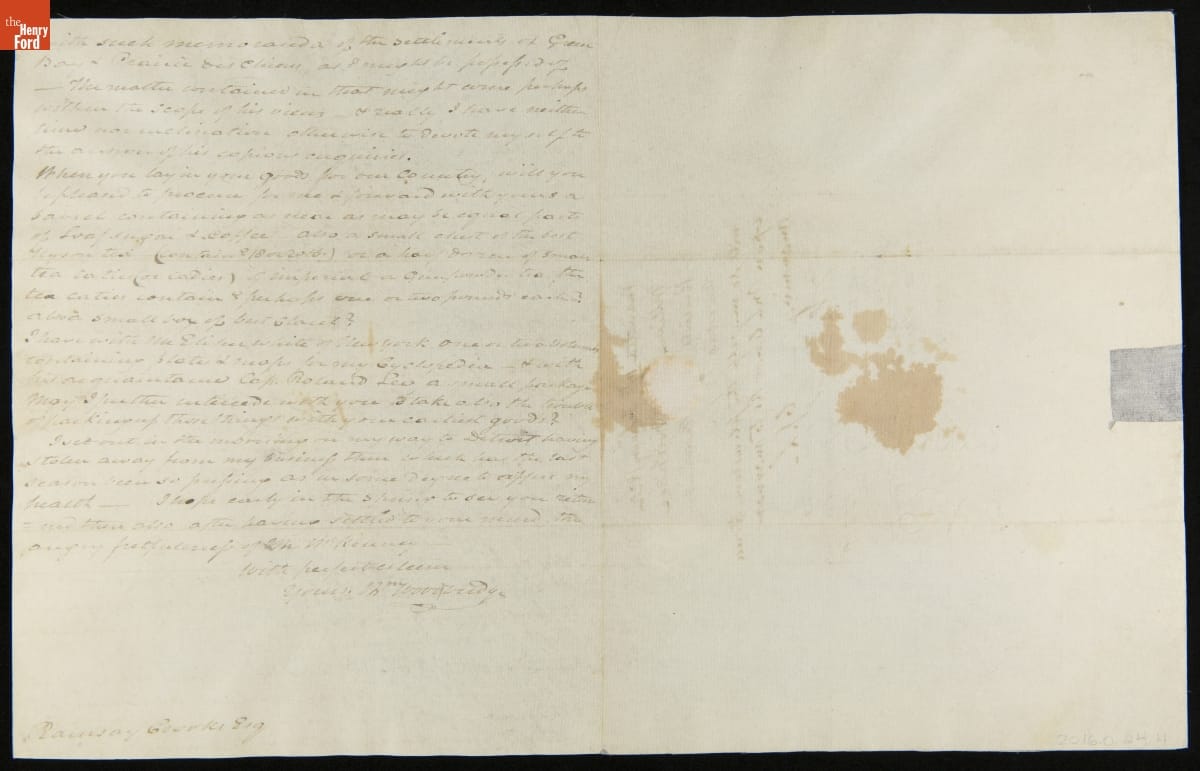 the
Henry
Ford
with such memoranda of the settlements of Green
Bay & Prairie des Chiens, as I might be possessed of
— The matter contained in that might come perhaps
within the scope of his views — & really I have neither
time nor inclination otherwise to devote myself to
the answer of his copious enquiries.
When you lay in your goods for our Country, will you
be pleased to procure for me & forward with yours a
barrel containing as near as may be equal parts
of Loaf sugar & Coffee — also a small chest of the best
Hyson tea — (containg 18 or 20 lb.) or a half dozen of small
tea caties (or cadies) of imperial or Gunpowder tea, the
tea caties contain & perhaps one or two pounds each?
also a small box of best Claret?
I have with Mr Elisha White of New York one or two volumes
containing plates & maps for my Cyclopedia — & with
his acquaintance Cap. Roland Lee a small package
May I further intercede with you to take also the trouble
of packing up those things with your earliest goods?
I set out in the morning on my way to Detroit having
stolen away from my business there which has the last
season been so pressing as in some degree to affect my
health — I hope early in the Spring to see you return
= and then also after having settled to your mind, the
angry fretfulness of Mr McKenney —
With perfect esteem
Yours Wm Woodbridge
Ramsay Crooks Esq
2016.0.24.4